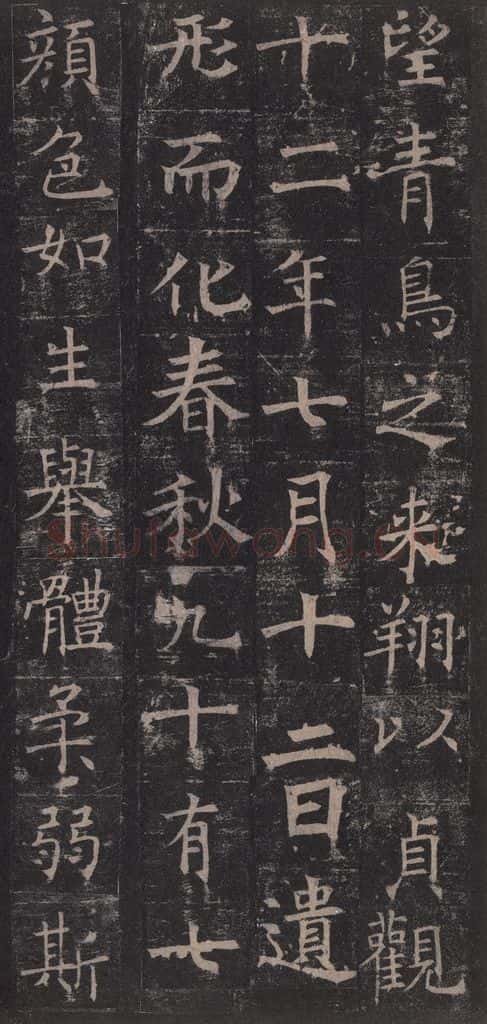 望青鳥之来翔以貞觀
十二年七月十二日遺
形而化春秋九十有七
顔色如生舉體柔弱斯
shufawang.cn